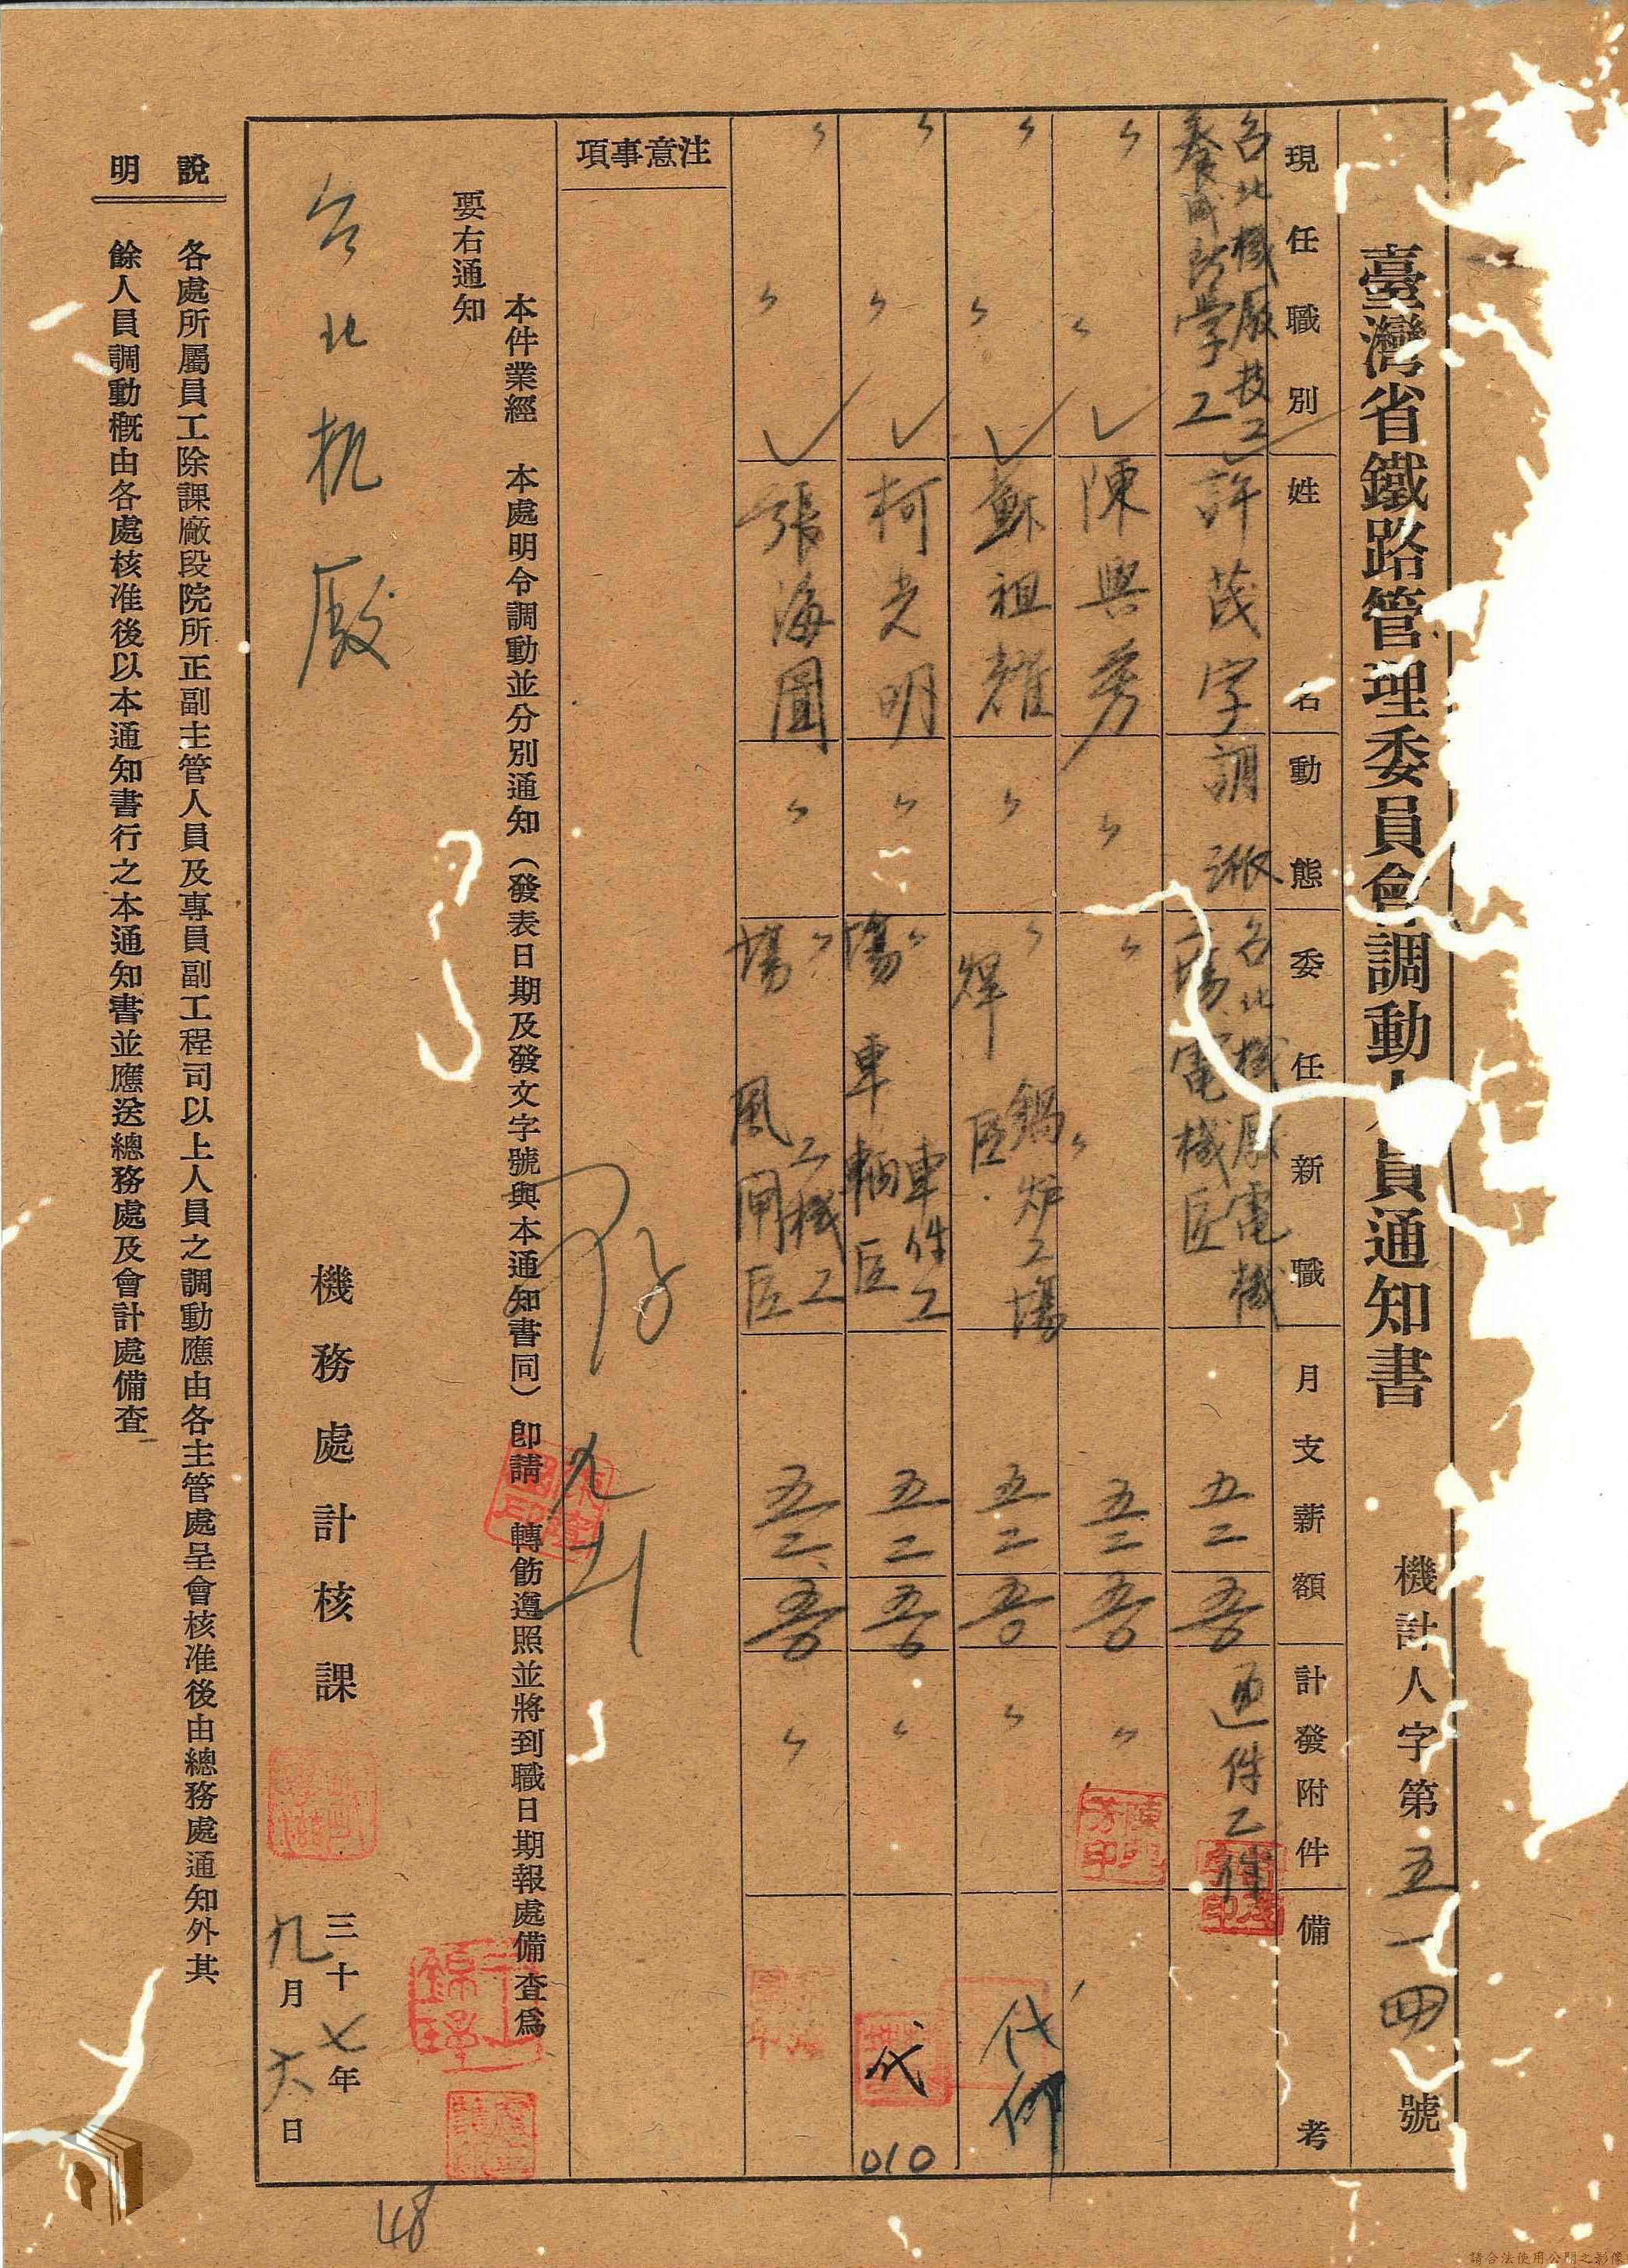 臺灣省鐵路管理委員會調動人員通知書
機計人字第五一四號
現任職別
姓名
動態
委任新職
月支薪額
計發附件
備考
台北機廠技工
養成所学工
許茂字
調派
台北機廠電機
工場電機匠
五二
吾
通件乙件
〃
〃
陳興秀
〃
〃
〃
五二
吾
〃
〃
〃
蘇祖雄
〃
〃
鍋炉工場
焊匠
五二
吾
〃
代
〃
〃
柯光明
〃
〃車件工
場車輛匠
五二
吾
〃
代
010
〃
〃
張海圖
〃
〃工機工
場風閘匠
五二
吾
〃
注意事項
九
本件業經 本處明令調動並分別通知（發表日期及發文字號與本通知書同）卽請 轉飭遵照並將到職日期報處備查爲
要右通知
台北机廠
機務處計核課
三十七年
九月六日
說明
各處所屬員工除課廠段院所正副主管人員及專員副工程司以上人員之調動應由各主管處呈會核准後由總務處通知外其
餘人員調動槪由各處核准後以本通知書行之本通知書並應送總務處及會計處備查
48
請合法使用公開之影像